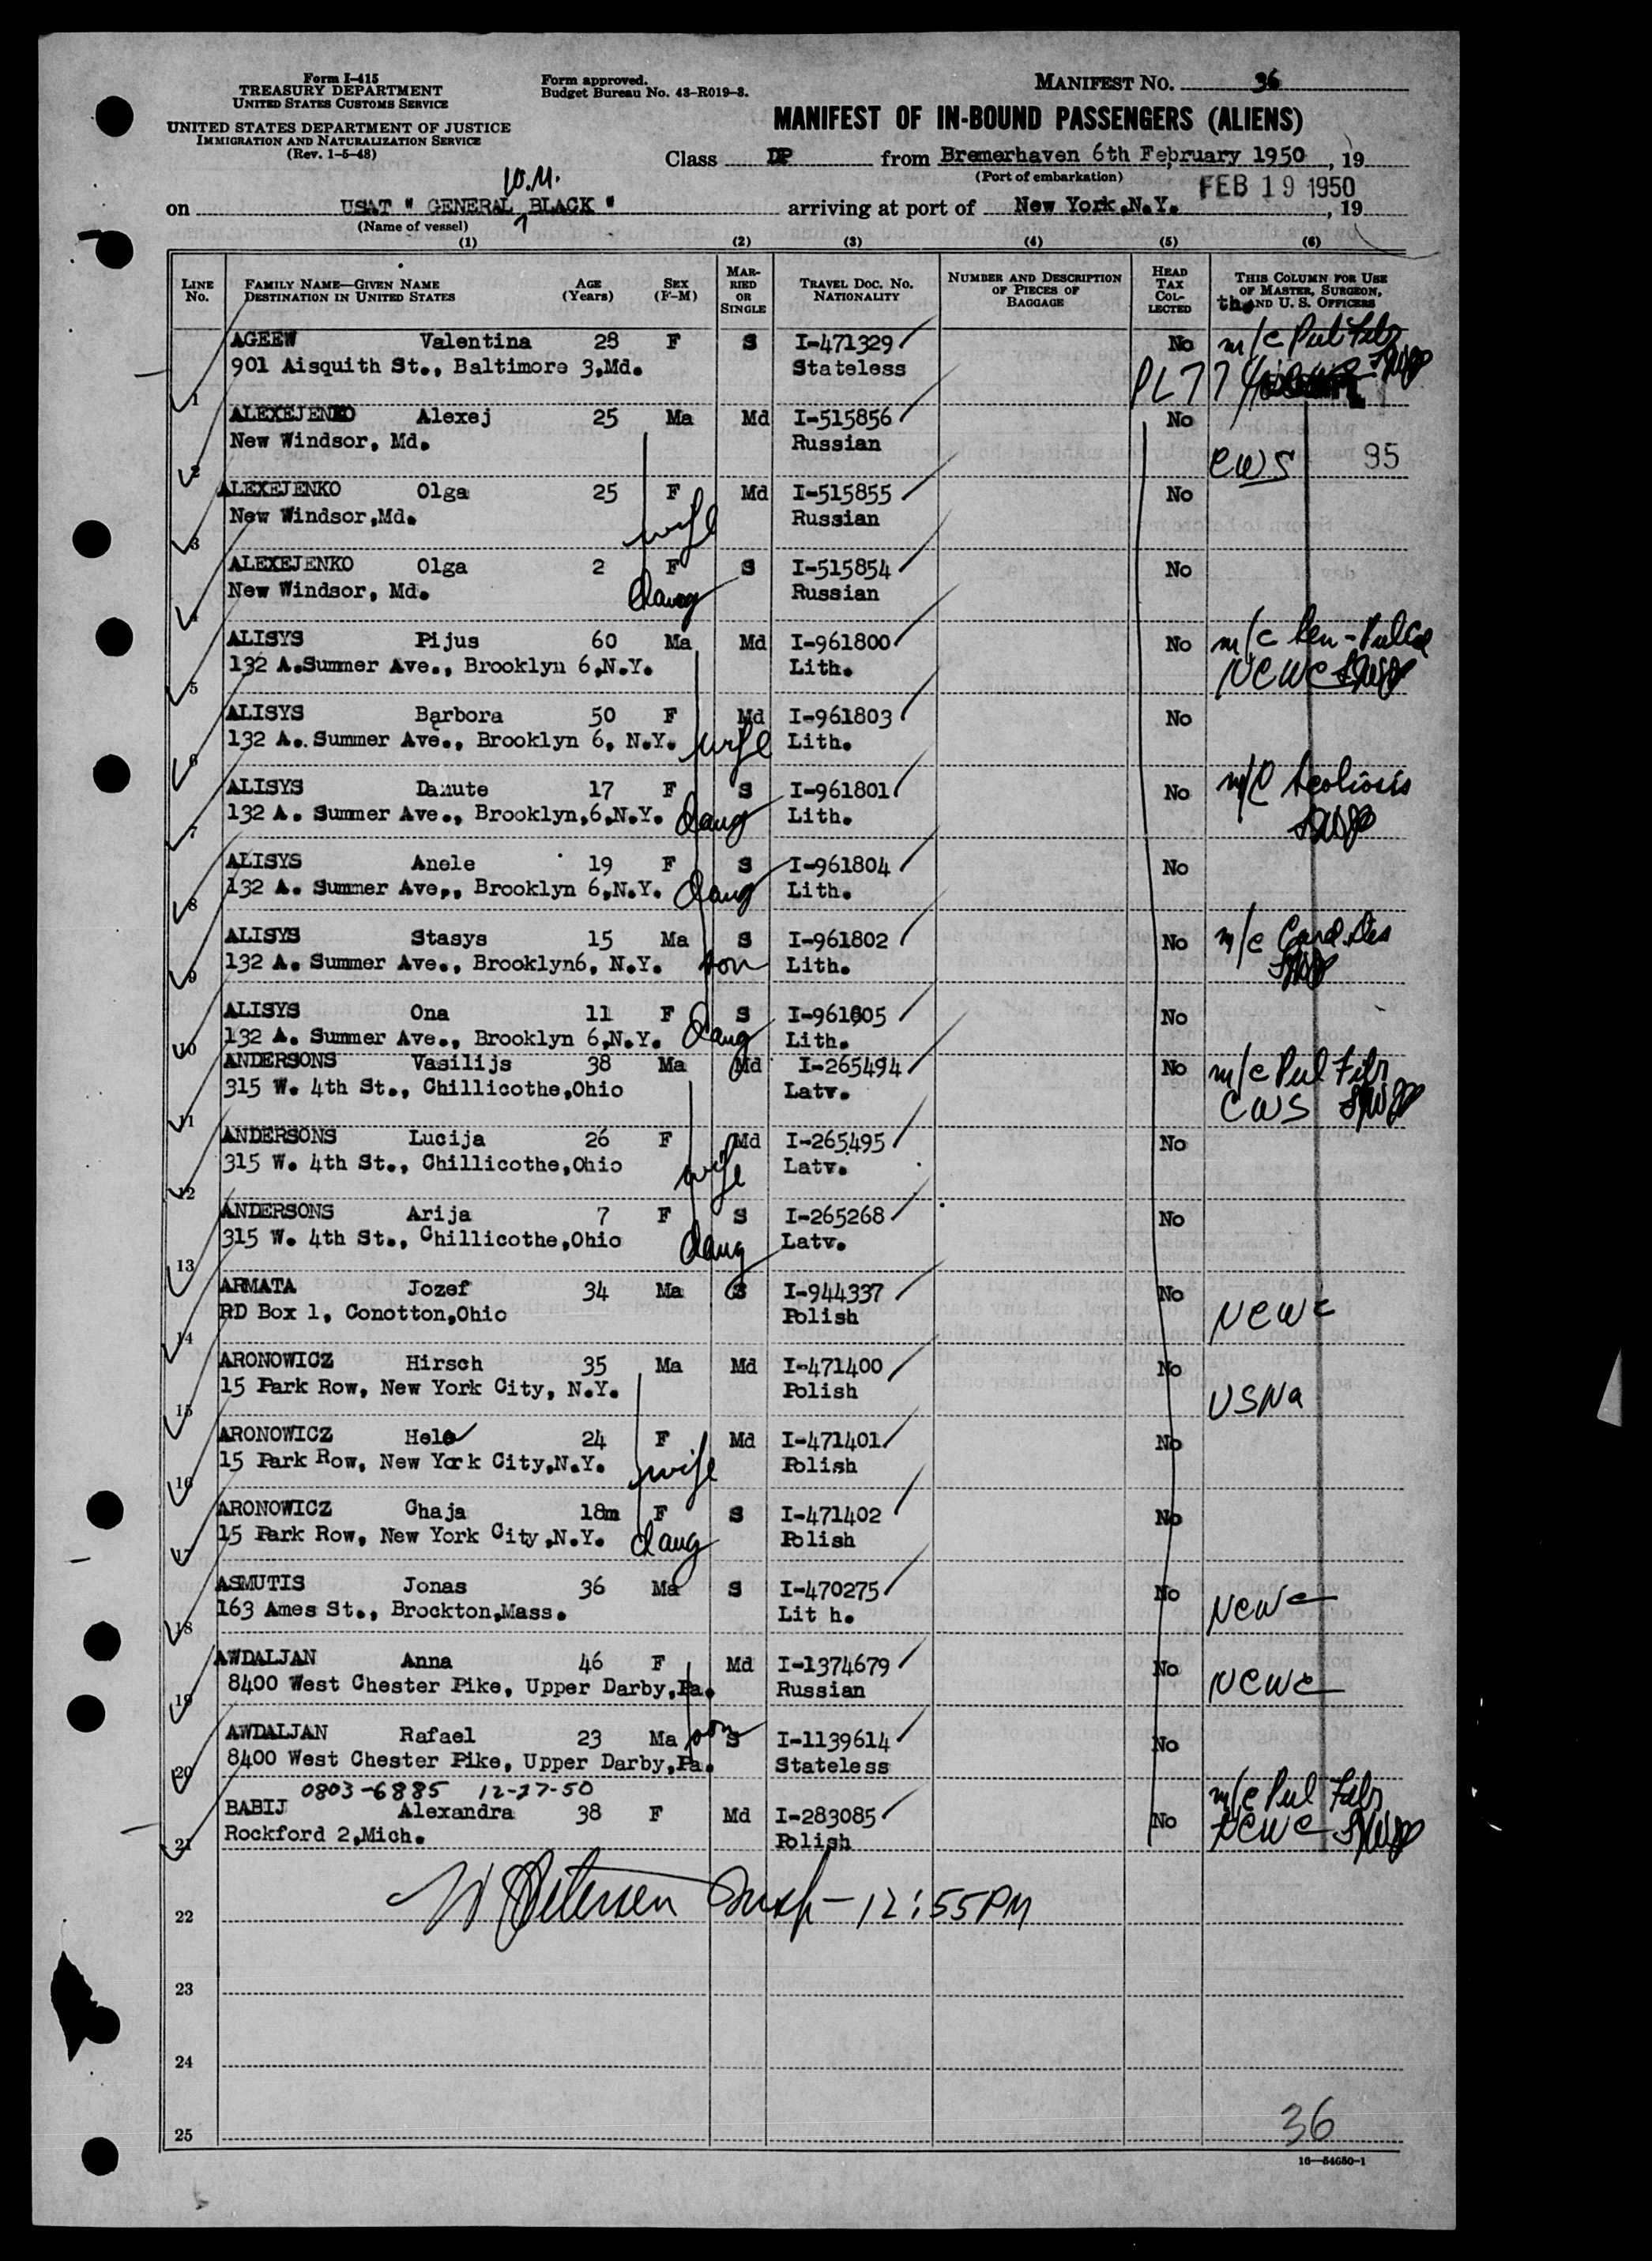 Form I-415
TREASURY DEPARTMENT
UNITED STATES CUSTOMS SERVICE
UNITED STATES DEPARTMENT OF JUSTICE
IMMIGRATION AND NATURALIZATION SERVICE
(Rev. 1-5-48)
Form approved.
Budget Bureau No. 43-R019-3.
MANIFEST NO. 36
MANIFEST OF IN-BOUND PASSENGERS (ALIENS)
Class DP from Bremerhaven 6th February 1950, 19
(Port of embarkation)
FEB 19 1950
W.M.
on USAT " GENERAL BLACK " arriving at port of New York,N.Y. , 19
(Name of vessel)
(1) (2) (3) (4) (5) (6)
LINE No. FAMILY NAME—GIVEN NAME DESTINATION IN UNITED STATES AGE (Years) SEX (F-M) MARRIED OR SINGLE TRAVEL DOC. NO. NATIONALITY NUMBER AND DESCRIPTION OF PIECES OF BAGGAGE HEAD TAX COLLECTED THIS COLUMN FOR USE OF MASTER, SURGEON, AND U. S. OFFICERS
AGEEW Valentina 28 F S I-471329 No m/c Pul Fibr
1 901 Aisquith St., Baltimore 3,Md. Stateless PL774
ALEXEJENKO Alexej 25 Ma Md I-515856 No
2 New Windsor, Md. Russian CWS 95
ALEXEJENKO Olga 25 F Md I-515855 No
3 New Windsor,Md. wife Russian
ALEXEJENKO Olga 2 F S I-515854 No
4 New Windsor, Md. daug Russian
ALISYS Pijus 60 Ma Md I-961800 No m/c
5 132 A.Summer Ave., Brooklyn 6,N.Y. Lith. NCWC
ALISYS Barbora 50 F Md I-961803 No
6 132 A. Summer Ave., Brooklyn 6, N.Y. wife Lith.
ALISYS Danute 17 F S I-961801 No m/c Scoliosis
7 132 A. Summer Ave., Brooklyn,6,N.Y. daug Lith.
ALISYS Anele 19 F S I-961804 No
8 132 A. Summer Ave,, Brooklyn 6,N.Y. daug Lith.
ALISYS Stasys 15 Ma S I-961802 No m/c Card. Dis
9 132 A. Summer Ave., Brooklyn6, N.Y. son Lith.
ALISYS Ona 11 F S I-961805 No
10 132 A. Summer Ave., Brooklyn 6,N.Y. daug Lith.
ANDERSONS Vasilijs 38 Ma Md I-265494 No m/c Pul Fibr
11 315 W. 4th St., Chillicothe,Ohio Latv. CWS
ANDERSONS Lucija 26 F Md I-265495 No
12 315 W. 4th St., Chillicothe,Ohio wife Latv.
ANDERSONS Arija 7 F S I-265268 No
13 315 W. 4th St., Chillicothe,Ohio daug Latv.
ARMATA Jozef 34 Ma S I-944337 No
14 RD Box 1, Conotton,Ohio Polish NCWC
ARONOWICZ Hirsch 35 Ma Md I-471400 No
15 15 Park Row, New York City, N.Y. Polish USNA
ARONOWICZ Hela 24 F Md I-471401 No
16 15 Park Row, New York City,N.Y. wife Polish
ARONOWICZ Chaja 18m F S I-471402 No
17 15 Park Row, New York City,N.Y. daug Polish
ASMUTIS Jonas 36 Ma S I-470275 No
18 163 Ames St., Brockton,Mass. Lit h. NCWC
AWDALJAN Anna 46 F Md I-1374679 No
19 8400 West Chester Pike, Upper Darby,Pa. Russian NCWC
AWDALJAN Rafael 23 Ma son S I-1139614 No
20 8400 West Chester Pike, Upper Darby,Pa. Stateless
0803-6885 12-27-50
BABIJ Alexandra 38 F Md I-283085 No m/c Pul Fibr
21 Rockford 2,Mich. Polish NCWC
22 W Petersen Insp - 12:55PM
23
24
25
36
16—54650-1